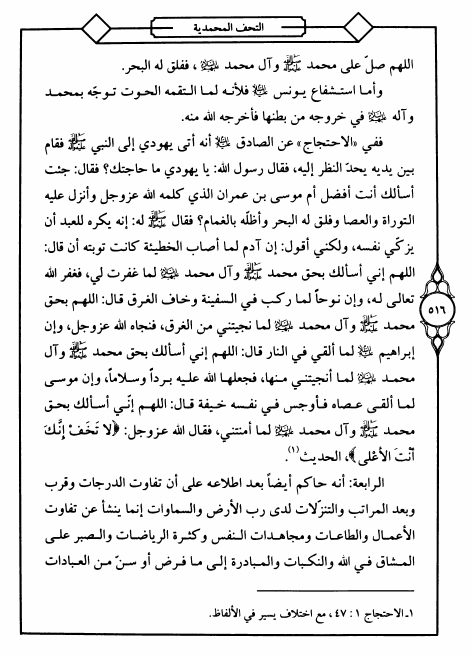 التحف المحمدية
اللهم صلّ على محمد ﷺ وآل محمد ، ففلق له البحر.
وأما استشفاع يونس فلأنه لما التقمه الحوت توجّه بمحمد
وآله في خروجه من بطنها فأخرجه الله منه.
ففي «الاحتجاج» عن الصادق أنه أتى يهودي إلى النبي ﷺ فقام
بين يديه يحدّ النظر إليه، فقال رسول الله: يا يهودي ما حاجتك؟ فقال: جئت
أسألك أنت أفضل أم موسى بن عمران الذي كلمه الله عزوجل وأنزل عليه
التوراة والعصا وفلق له البحر وأظلّه بالغمام؟ فقال ﷺ له: إنه يكره للعبد أن
يزكّي نفسه، ولكني أقول: إن آدم لما أصاب الخطيئة كانت توبته أن قال:
اللهم إني أسألك بحق محمد ﷺ وآل محمد لما غفرت لي، فغفر الله
تعالى له، وإن نوحاً لما ركب في السفينة وخاف الغرق قال: اللهم بحق
محمد ﷺ وآل محمد لما نجيتني من الغرق، فنجاه الله عزوجل، وإن
٥١٦
إبراهيم لما ألقي في النار قال: اللهم إني أسألك بحق محمد ﷺ وآل
محمد لما أنجيتني منها، فجعلها الله عليه برداً وسلاماً، وإن موسى
لما ألقى عصاه فأوجس في نفسه خيفة قال: اللهم إنّي أسألك بحق
محمد ﷺ وآل محمد لما أمنتني، فقال الله عزوجل: ﴿لَا تَخَفْ إِنَّكَ
أَنْتَ الأَعْلَى﴾، الحديث(١).
الرابعة: أنه حاكم أيضاً بعد اطلاعه على أن تفاوت الدرجات وقرب
وبعد المراتب والتنزلات لدى رب الأرض والسماوات إنما ينشأ عن تفاوت
الأعمال والطاعات ومجاهدات النفس وكثرة الرياضات والصبر على
المشاق في الله والنكبات والمبادرة إلى ما فرض أو سنّ من العبادات
١ـ الاحتجاج ١ : ٤٧، مع اختلاف يسير في الألفاظ.